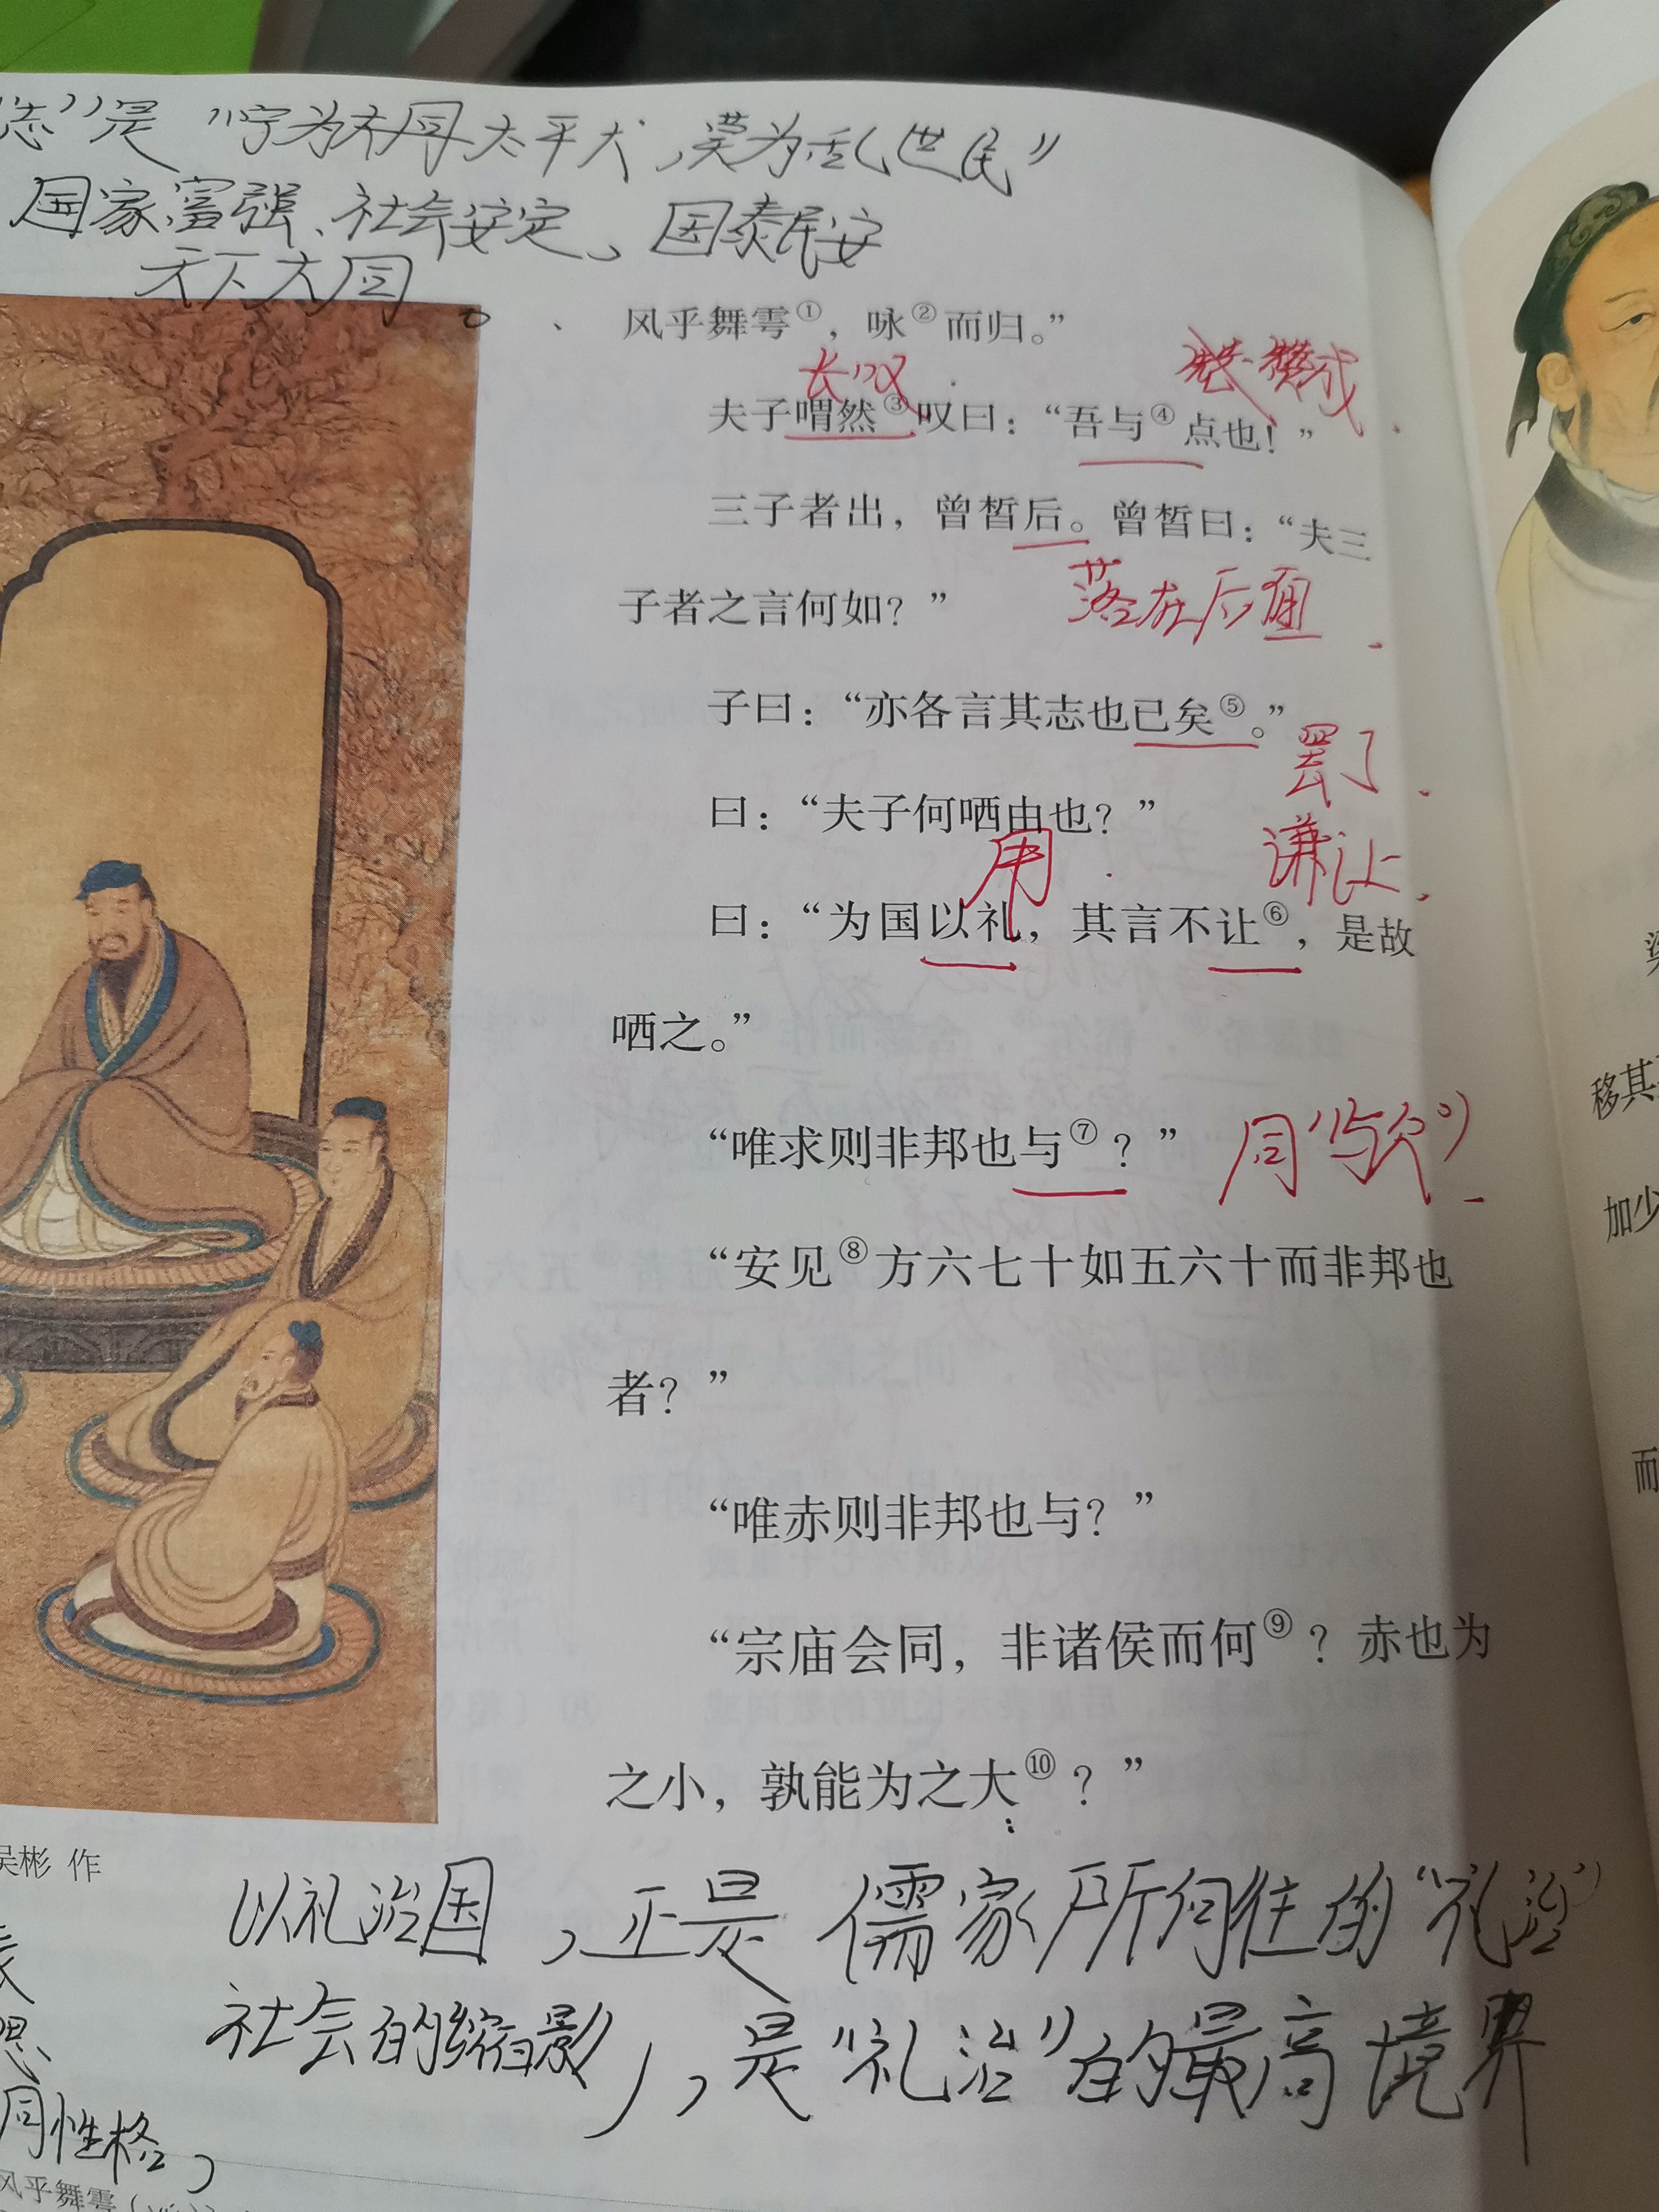 志”是“宁为太平犬,莫为乱世民”
国家富强、社会安定、国泰民安
天下大同。
风乎舞雩①,咏②而归。”
长叹
赞成
夫子喟然③叹曰:“吾与④点也!”
三子者出,曾皙后。曾皙曰:“夫三
子者之言何如?”
落在后面
子曰:“亦各言其志也已矣⑤。”
罢了
曰:“夫子何哂由也?”
用
谦让
曰:“为国以礼,其言不让⑥,是故
哂之。”
“唯求则非邦也与⑦?”
同“欤”
“安见⑧方六七十如五六十而非邦也
者?”
“唯赤则非邦也与?”
“宗庙会同,非诸侯而何⑨?赤也为
之小,孰能为之大⑩?”
吴彬 作
以礼治国,正是儒家所向往的“礼治”
社会的缩影,是“礼治”的最高境界
思
同性格,
风乎舞雩
移其
加少
而